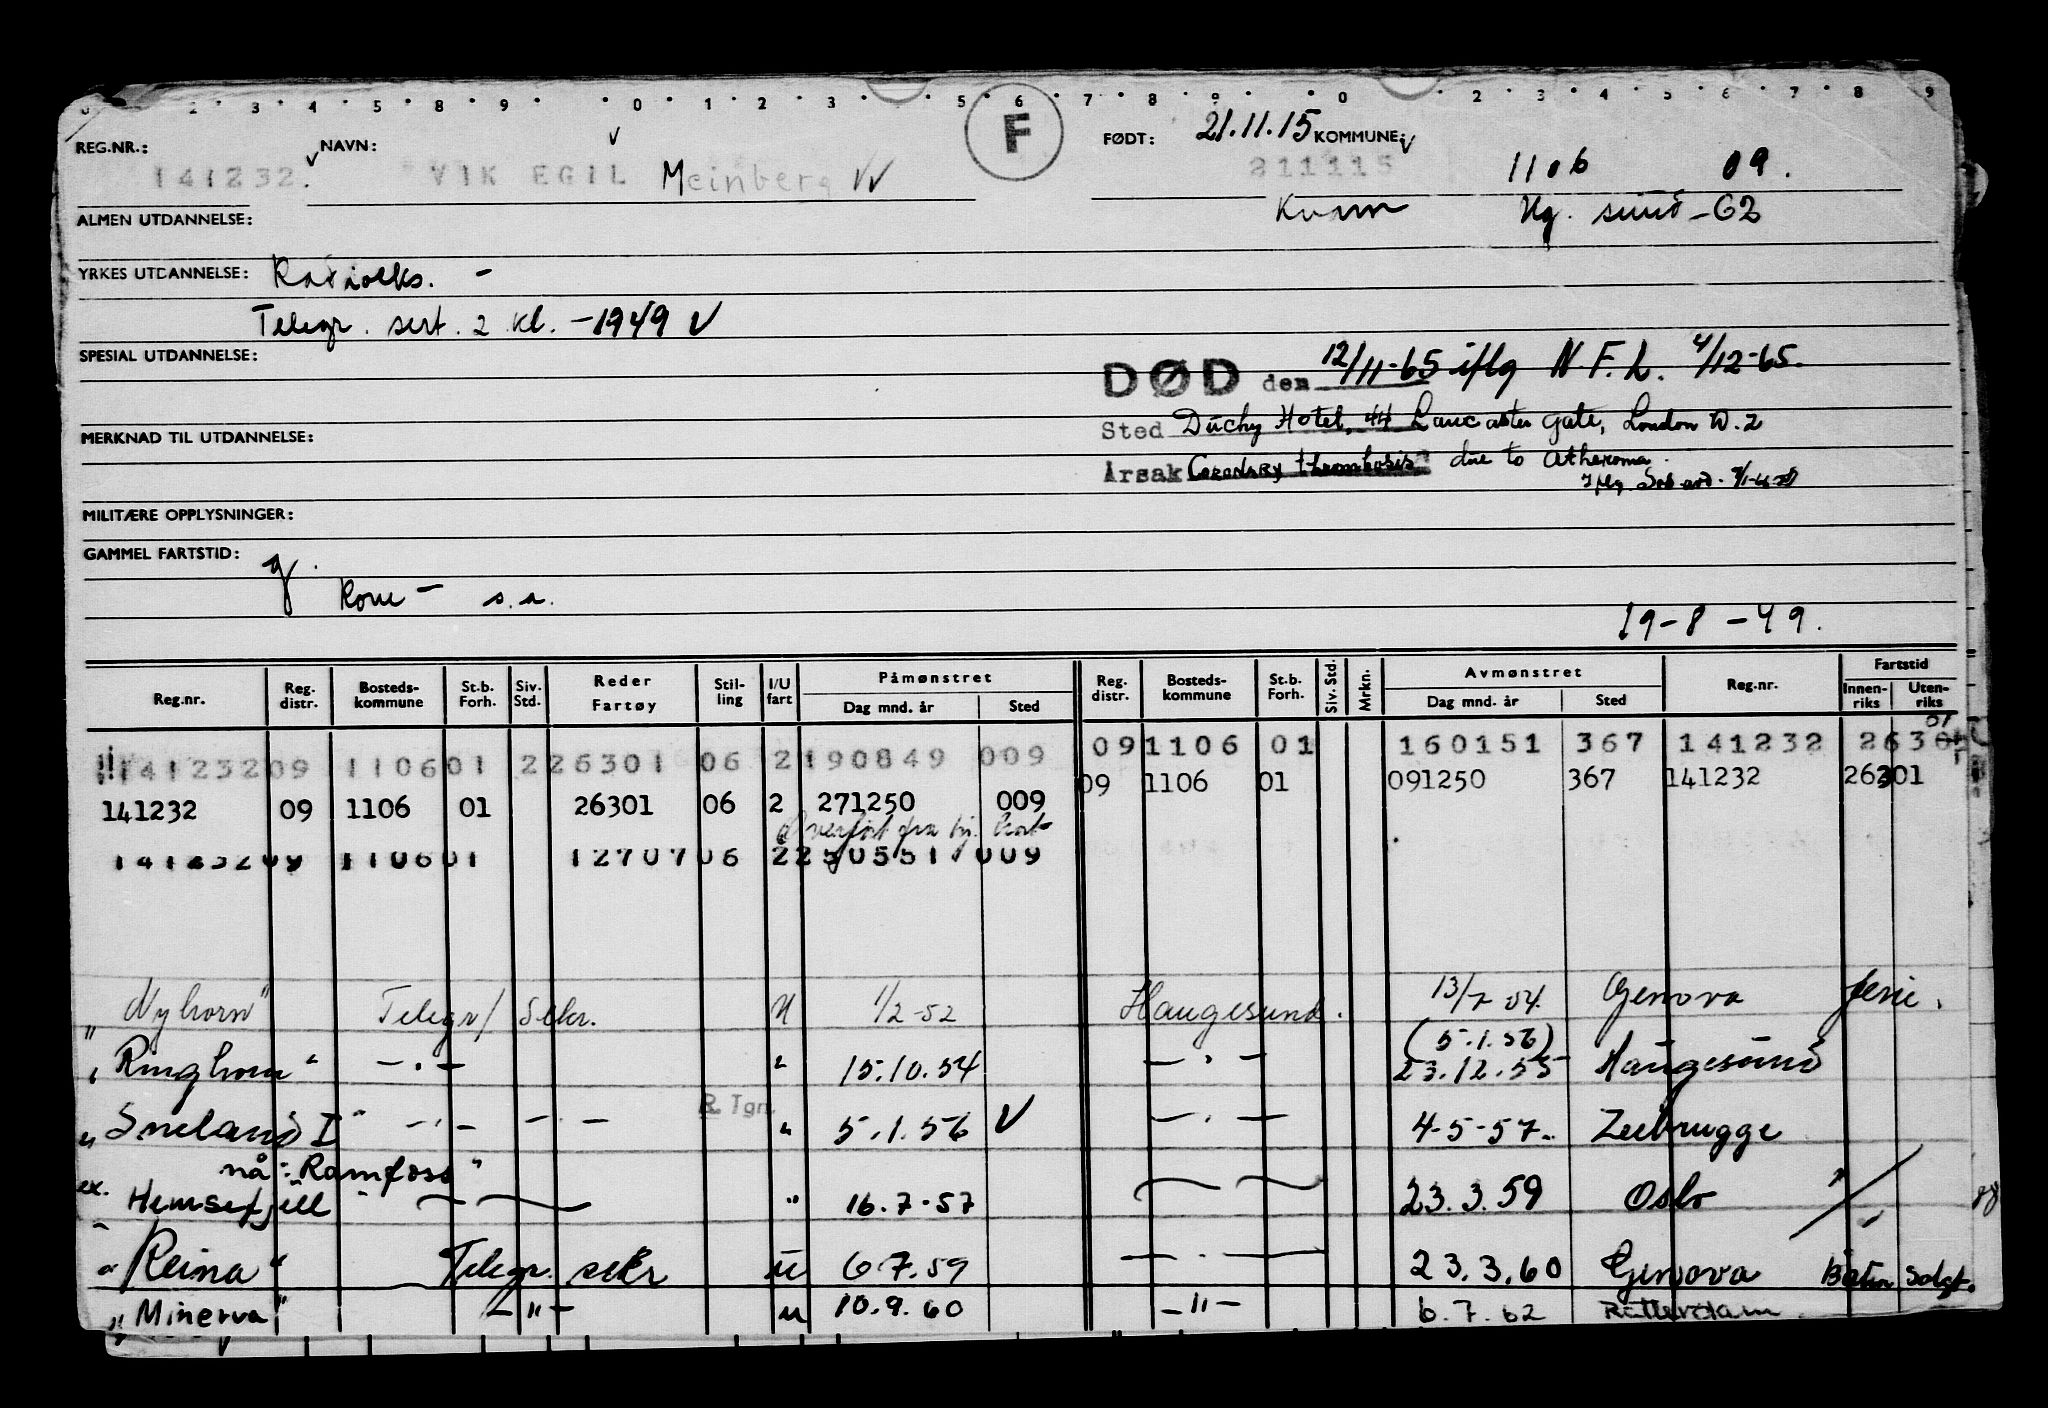 2 3 4 5 8 9 0 1 2 3 5 6 7 8 9 0 2 3 4 5 6 7 8 9
REG.NR.: NAVN: F FØDT: 21.11.15 KOMMUNE: V
141232. VIK EGIL Meinberg 211115 1106 09.
Kvam Hg. sund -62
ALMEN UTDANNELSE:
YRKES UTDANNELSE: Radioeks. -
Telegr. sert. 2 kl. -1949 V
SPESIAL UTDANNELSE:
DØD den 12/11-65 iflg N.F.L. 4/12-65.
Sted Duchy Hotel, 44 Lancaster Gate, London W.2
MERKNAD TIL UTDANNELSE:
Årsak Coronary thrombosis due to Atheroma.
MILITÆRE OPPLYSNINGER:
GAMMEL FARTSTID: g.
s.a.
19-8-49.
Reg.nr. Reg. distr. Bosteds- kommune St.b. Forh. Siv. Std. Reder Fartøy Stil- ling I/U fart Påmønstret Dag mnd. år Sted Reg. distr. Bosteds- kommune St.b. Forh. Siv. Std. Mrkn. Avmønstret Dag mnd. år Sted Reg.nr. Fartstid Innen- riks Uten- riks
141232 09 1106 01 2 26301 06 2 190849 009 09 1106 01 160151 367 141232 26301
09 1106 01 091250 367 141232 26301
141232 09 1106 01 26301 06 2 271250 009
Overført fra
141232 09 1106 01 12707 06 2 250551 009
"Nyhorn" Telegr/Sekr. U 1/2-52 Haugesund. 13/7 54. Genova ferie.
(5.1.56)
"Ringhorn" - . - " 15.10.54 - . - 23.12.55 Haugesund
R.Tgn.
"Sneland I" - . - - . - " 5.1.56 V - . - 4-5-57. Zeebrugge
nå: Ramfoss"
ex. Hemsefjell " " 16.7-57 23.3.59 Oslo
"Reina" Telegr. sekr u 6 7.59 - . - 23.3.60 Genova Båten solgt.
"Minerva" - " - u 10.9.60 - " - 6.7.62 Rotterdam.